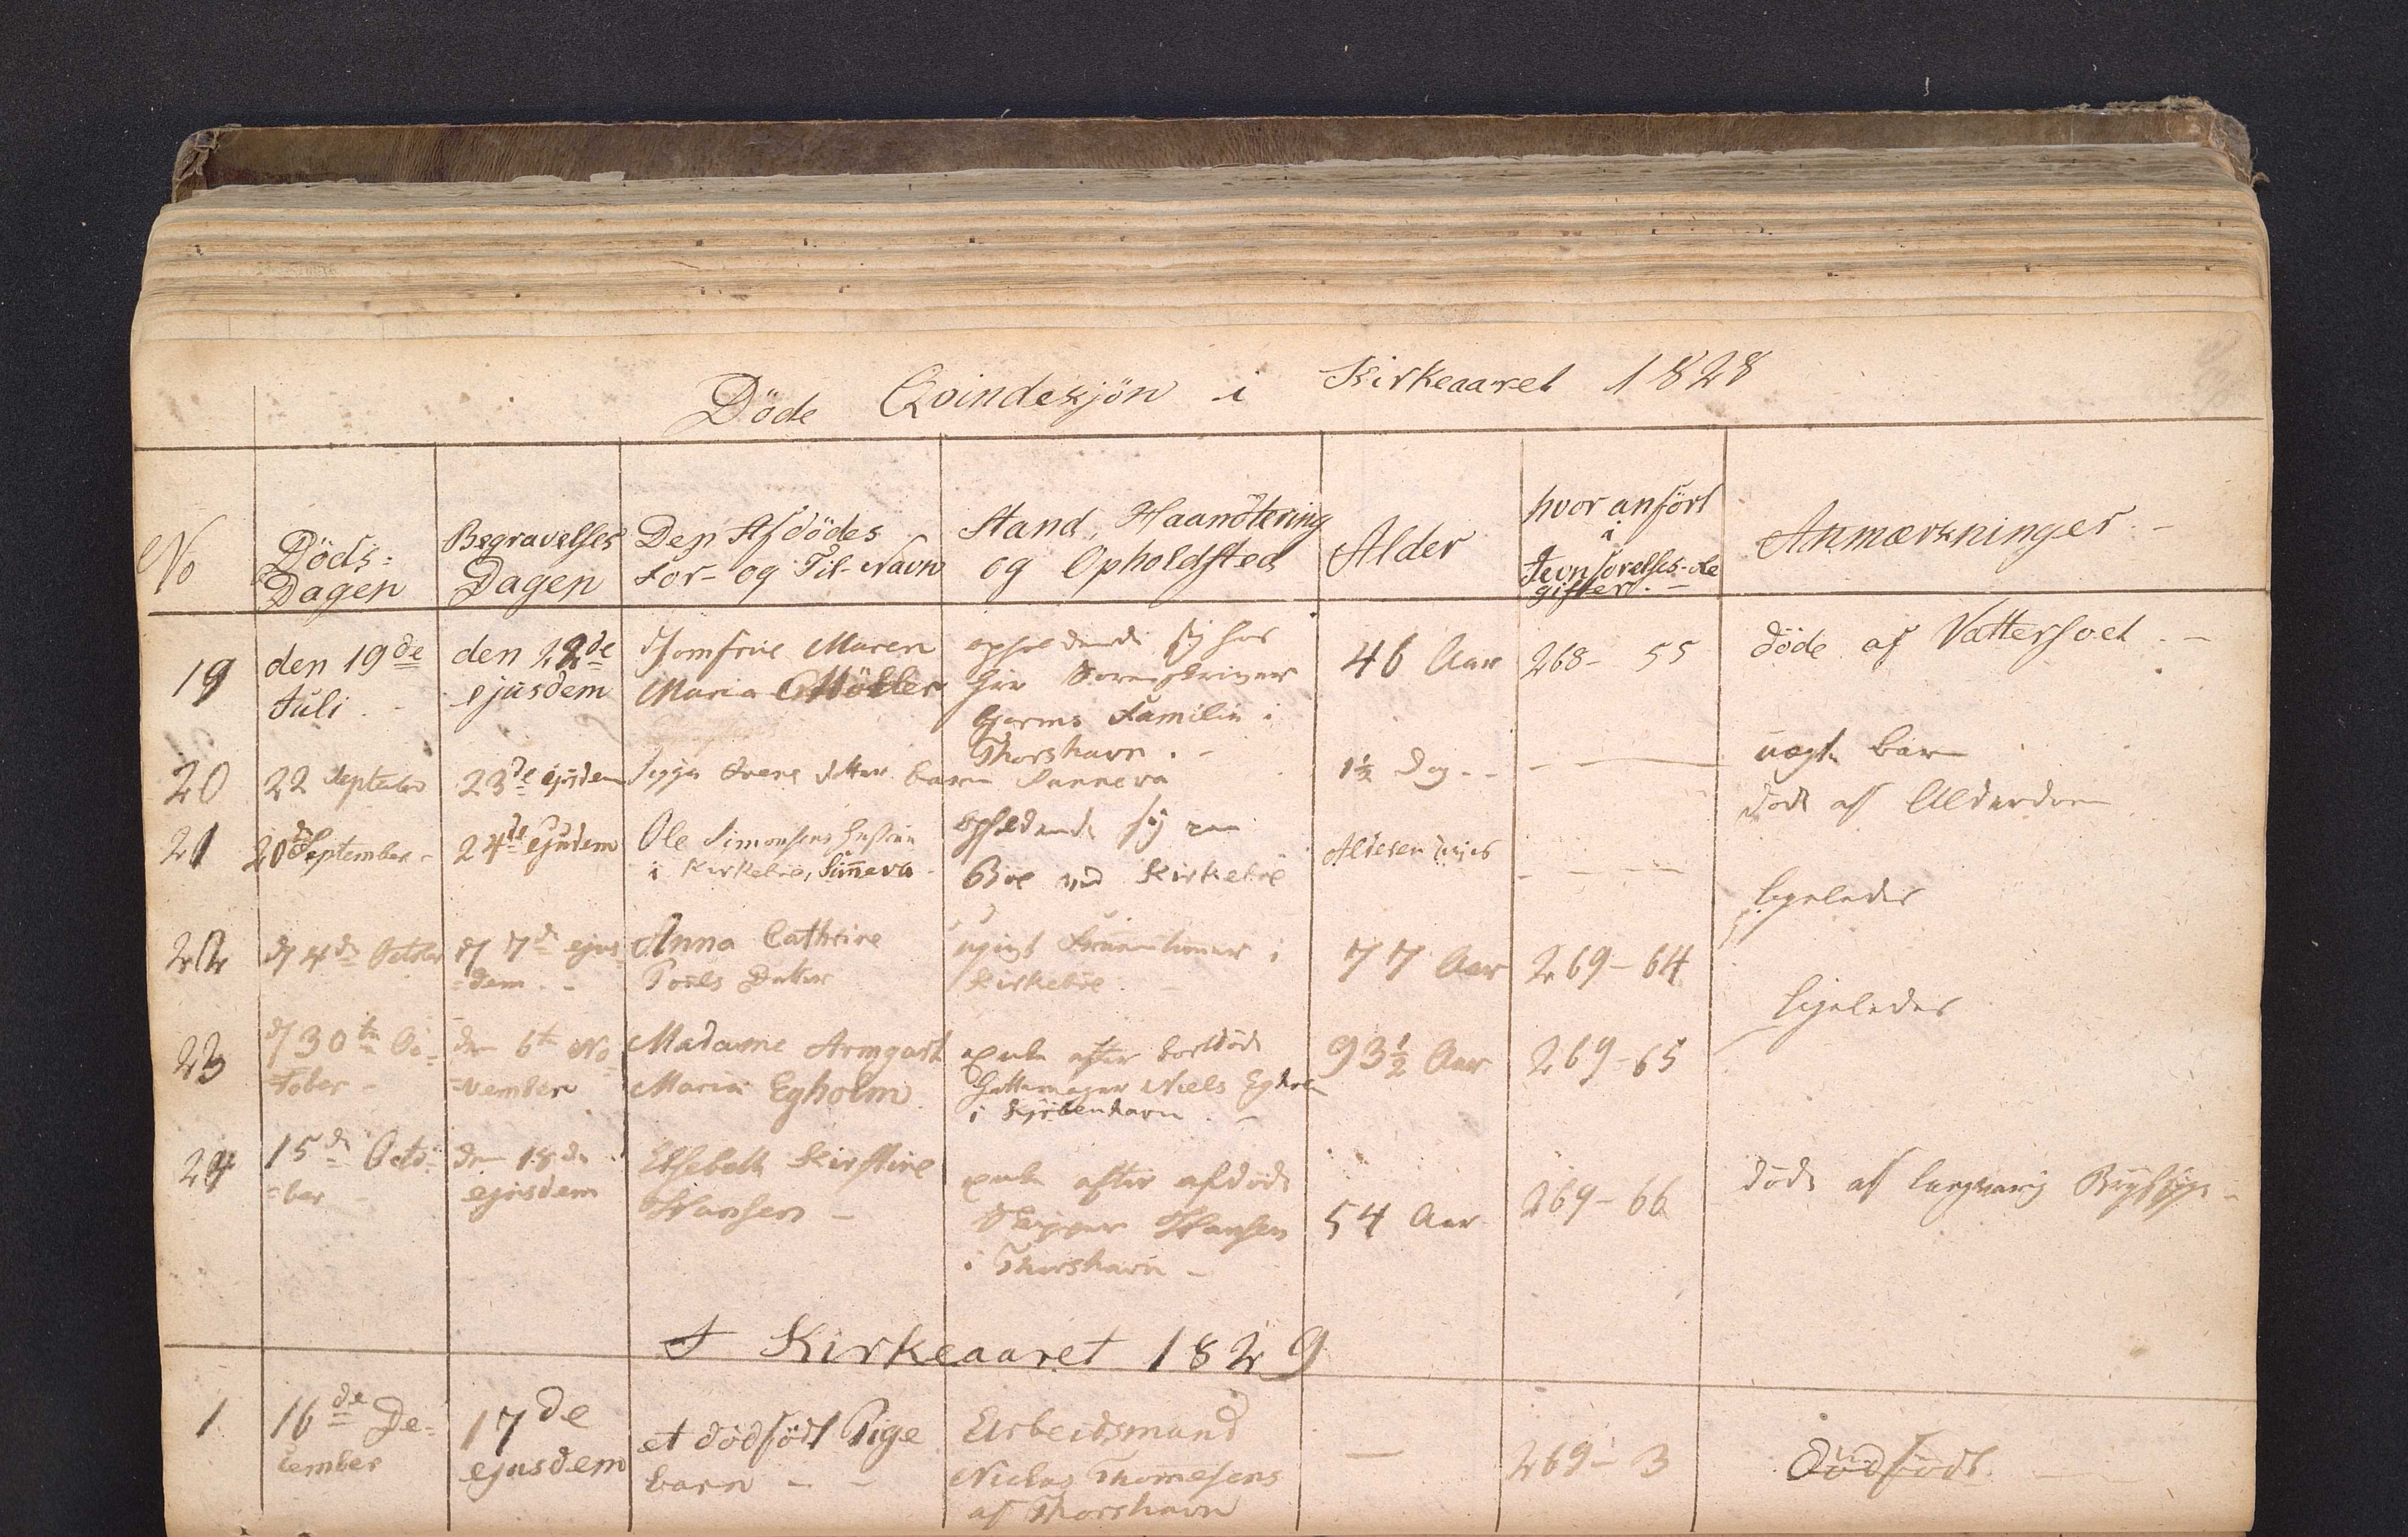 Döde Qvindekjön i Kirkeaaret 1828
No
Döds-
Dagen
Begravelses
Dagen
Den Afdödes
For- og Til-Navn
Stand, Haandtering
og Opholdsted
Alder
hvor anfört
i
Jevnförelses-Re
gisteret. -
Anmærkninger. -
19
den 19de
Juli. -
den 22de
ejusdem
Jomfrue Maren
Maria Möller
opholdende sig hos
Hrr Sorenskriver
Hjorms Familie i
Thorshavn. -
46 Aar
268- 55
döde af Vattersoet. -
20
22 September
23de ejusdem
barn Sanneva
1½ Dag - -
uægte barn
21
20de September -
24de ejusdem
Ole Simonsens Hustrue
i Kirkeböe, Sinneva -
opholdende sig paa
Böe ved Kirkeböe
döde af Alderdom
22
d 4de October
d 7de ejus
=dem. -
Anna Cathrine
Pouls Datter
ugivt Fruentimer i
Kirkeböe. -
77 Aar
269-64
ligeledes
23
d 30te Oc-
=tober -
den 6te No
=vember
Madame Armgast
Maria Egholm
enke efter bortdöde
Hattemager Niels Egholm
i Kjöbenhavn. -
93½ Aar
269-65
ligeledes
24
15de Octo-
=ber -
den 18de
ejusdem
Elsebeth Kirstine
Hansen -
enke efter afdöde
Skipper Hansen
i Thorshavn -
54 Aar
269-66
döde af langvarig Brystsyge -
I Kirkeaaret 1829
1
16de De-
cember
17de
ejusdem
et dödfödt Pige
barn - -
Arbeidsmand
Niclas Thomesens
af Thorshavn
-
269- 3
Dödfödt.